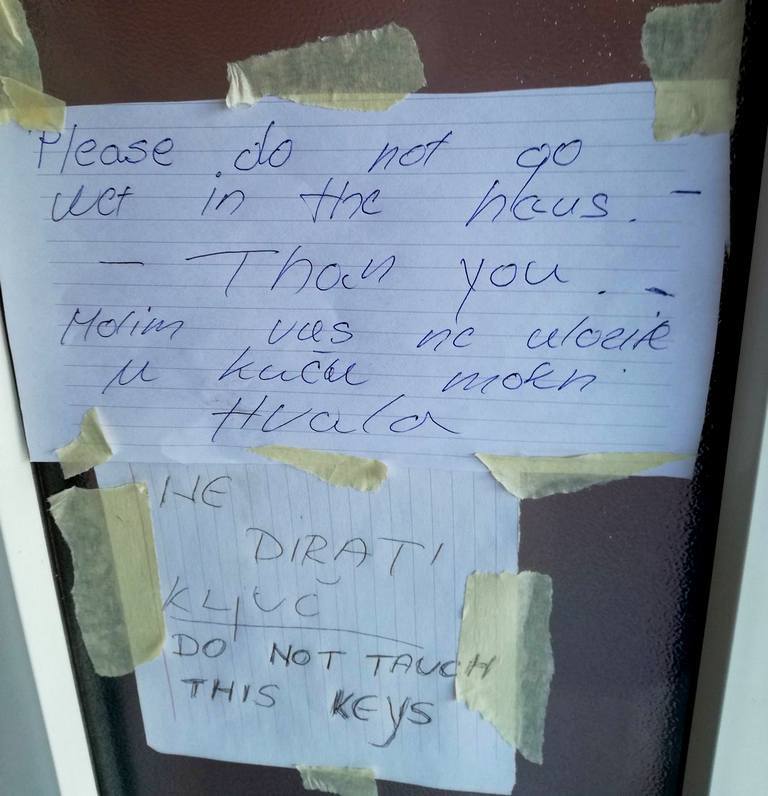 Please do not go
wet in the haus. -
- Than you. -
Molim vas ne ulazite
u kuću mokri
Hvala
NE
DIRATI
KLJUČ
DO NOT TAUCH
THIS KEYS